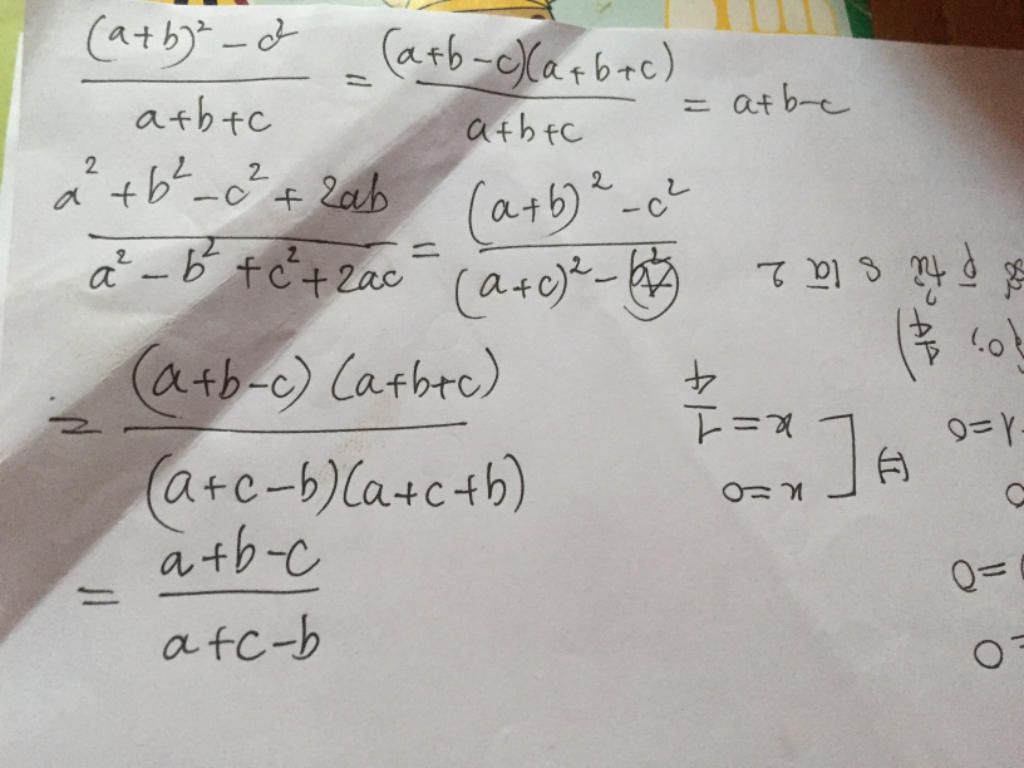 (a+b)² - c² / a+b+c = (a+b-c)(a+b+c) / a+b+c = a+b-c
a² + b² - c² + 2ab / a² - b² + c² + 2ac = (a+b)² - c² / (a+c)² - b²
= (a+b-c) (a+b+c) / (a+c-b)(a+c+b)
= a+b-c / a+c-b
x=0
x=1/4
=0
=0